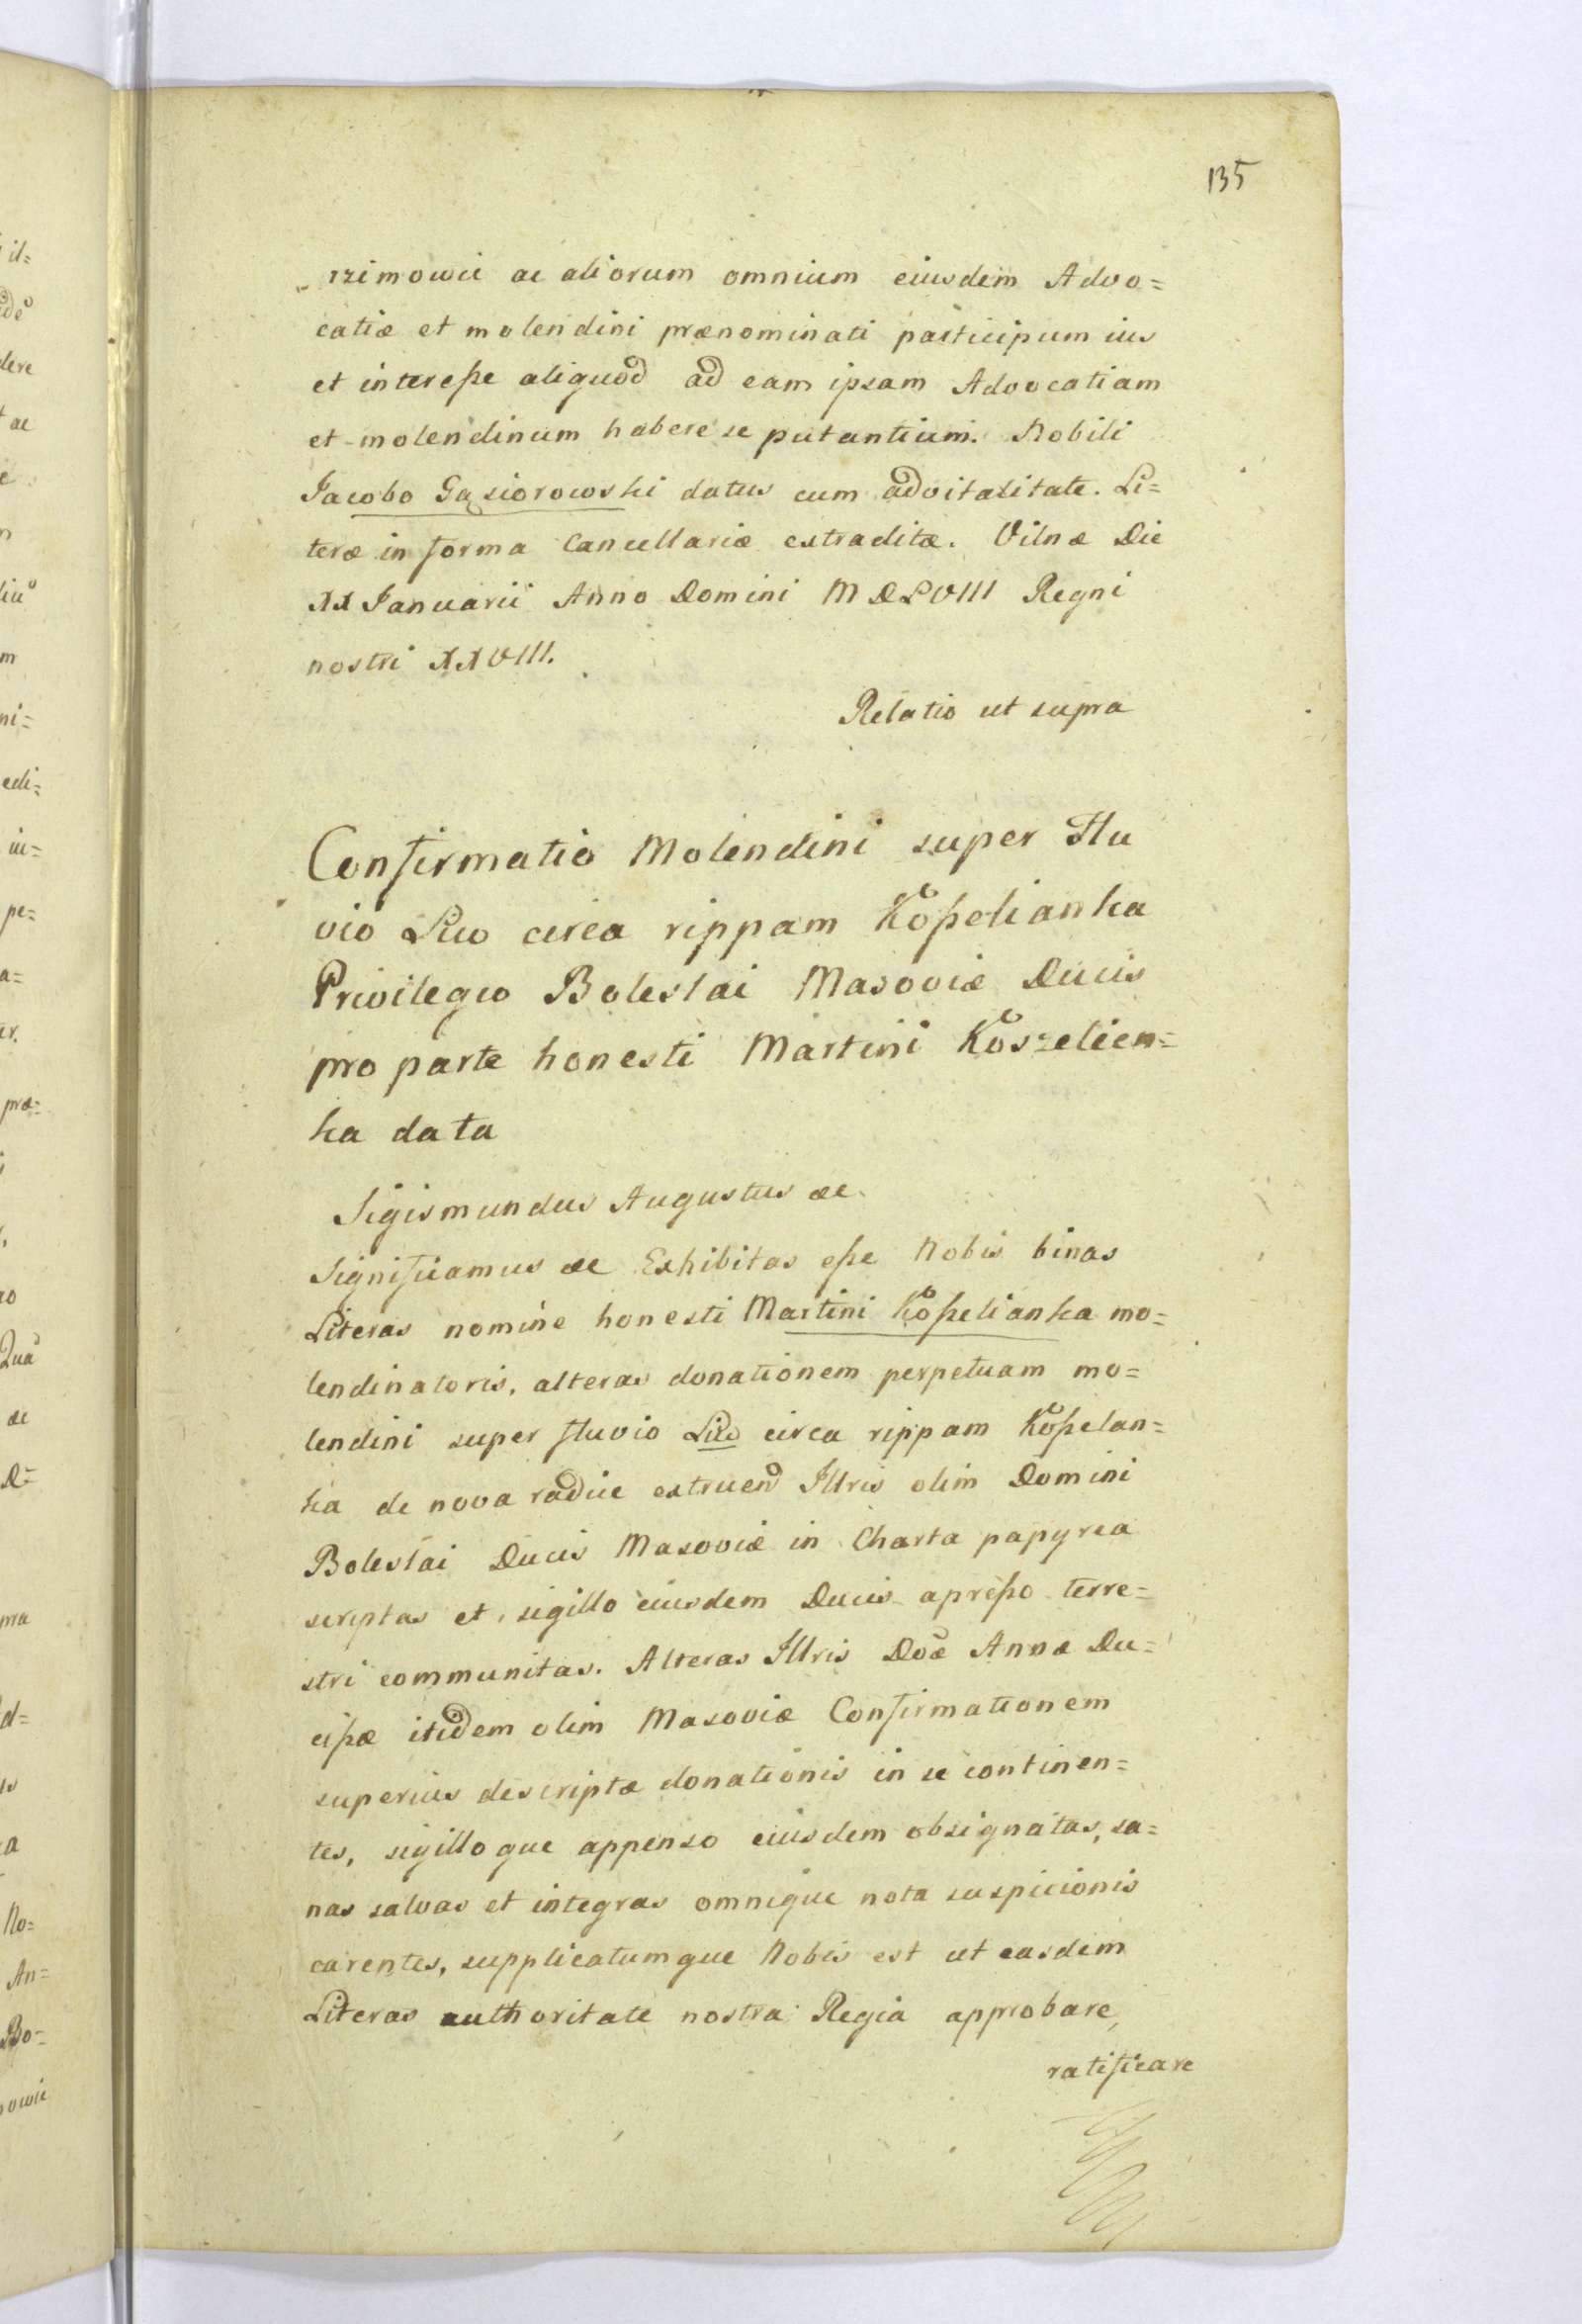 135
rzimowii ac aliorum omnium eiusdem Advo=
catiæ et molendini prænominati participum ius
et interesse aliquod ad eam ipsam Advocatiam
et molendinum habere se putantium. Nobili
Jacobo Gąsiorowski datus cum advitalitate. Li=
teræ in forma Cancellariæ extraditæ. Vilnæ Die
XX Januarii Anno Domini MDLVIII Regni
nostri XXVIII.
Relatio ut supra
Confirmatio Molendini super Flu
vio Liw circa rippam Koßelianka
Privilegio Boleslai Masoviæ Ducis
pro parte honesti Martini Koszelien=
ka data
Sigismundus Augustus &c.
Significamus &c Exhibitas esse Nobis binas
Literas nomine honesti Martini Koßelianka mo=
lendinatoris, alteras donationem perpetuam mo=
lendini super fluvio Liw circa rippam Koßelan=
ka de nova radice extruend Illris olim Domini
Boleslai Ducis Masoviæ in Charta papyrea
scriptas et sigillo eiusdem Ducis apresso terre=
stri communitas. Alteras Illris Doæ Annæ Du=
cissæ itidem olim Masoviæ Confirmationem
superius descriptæ donationis in se continen=
tes, sigilloque appenso eiusdem obsignatas, sa=
nas salvas et integras omnique nota suspicionis
carentes, supplicatumque Nobis est ut easdem
Literas authoritate nostra Regia approbare,
ratificare